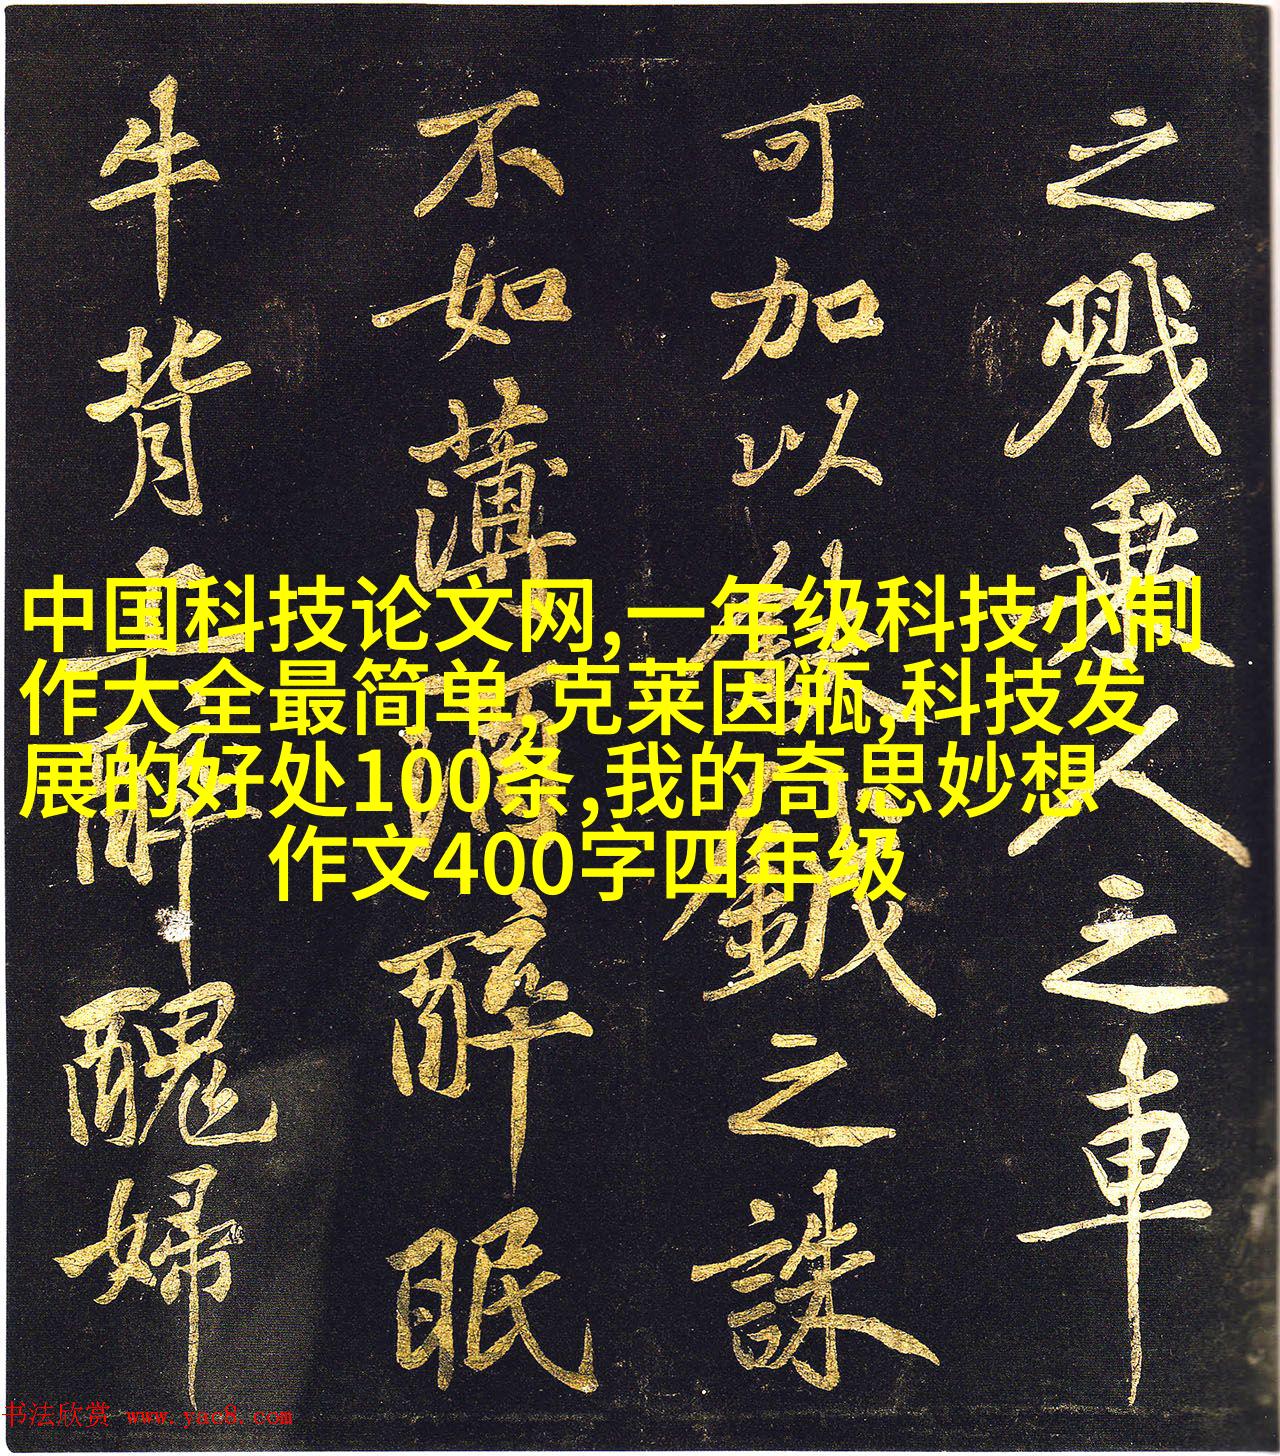 之戮乘人之車
可加以鈇鉞之誅
不如薄酒醉眠
牛背上醉醜婦
中国科技论文网,一年级科技小制
作大全最简单,克莱因瓶,科技发
展的好处100条,我的奇思妙想
作文400字四年级
书法欣赏 www.yac8.com